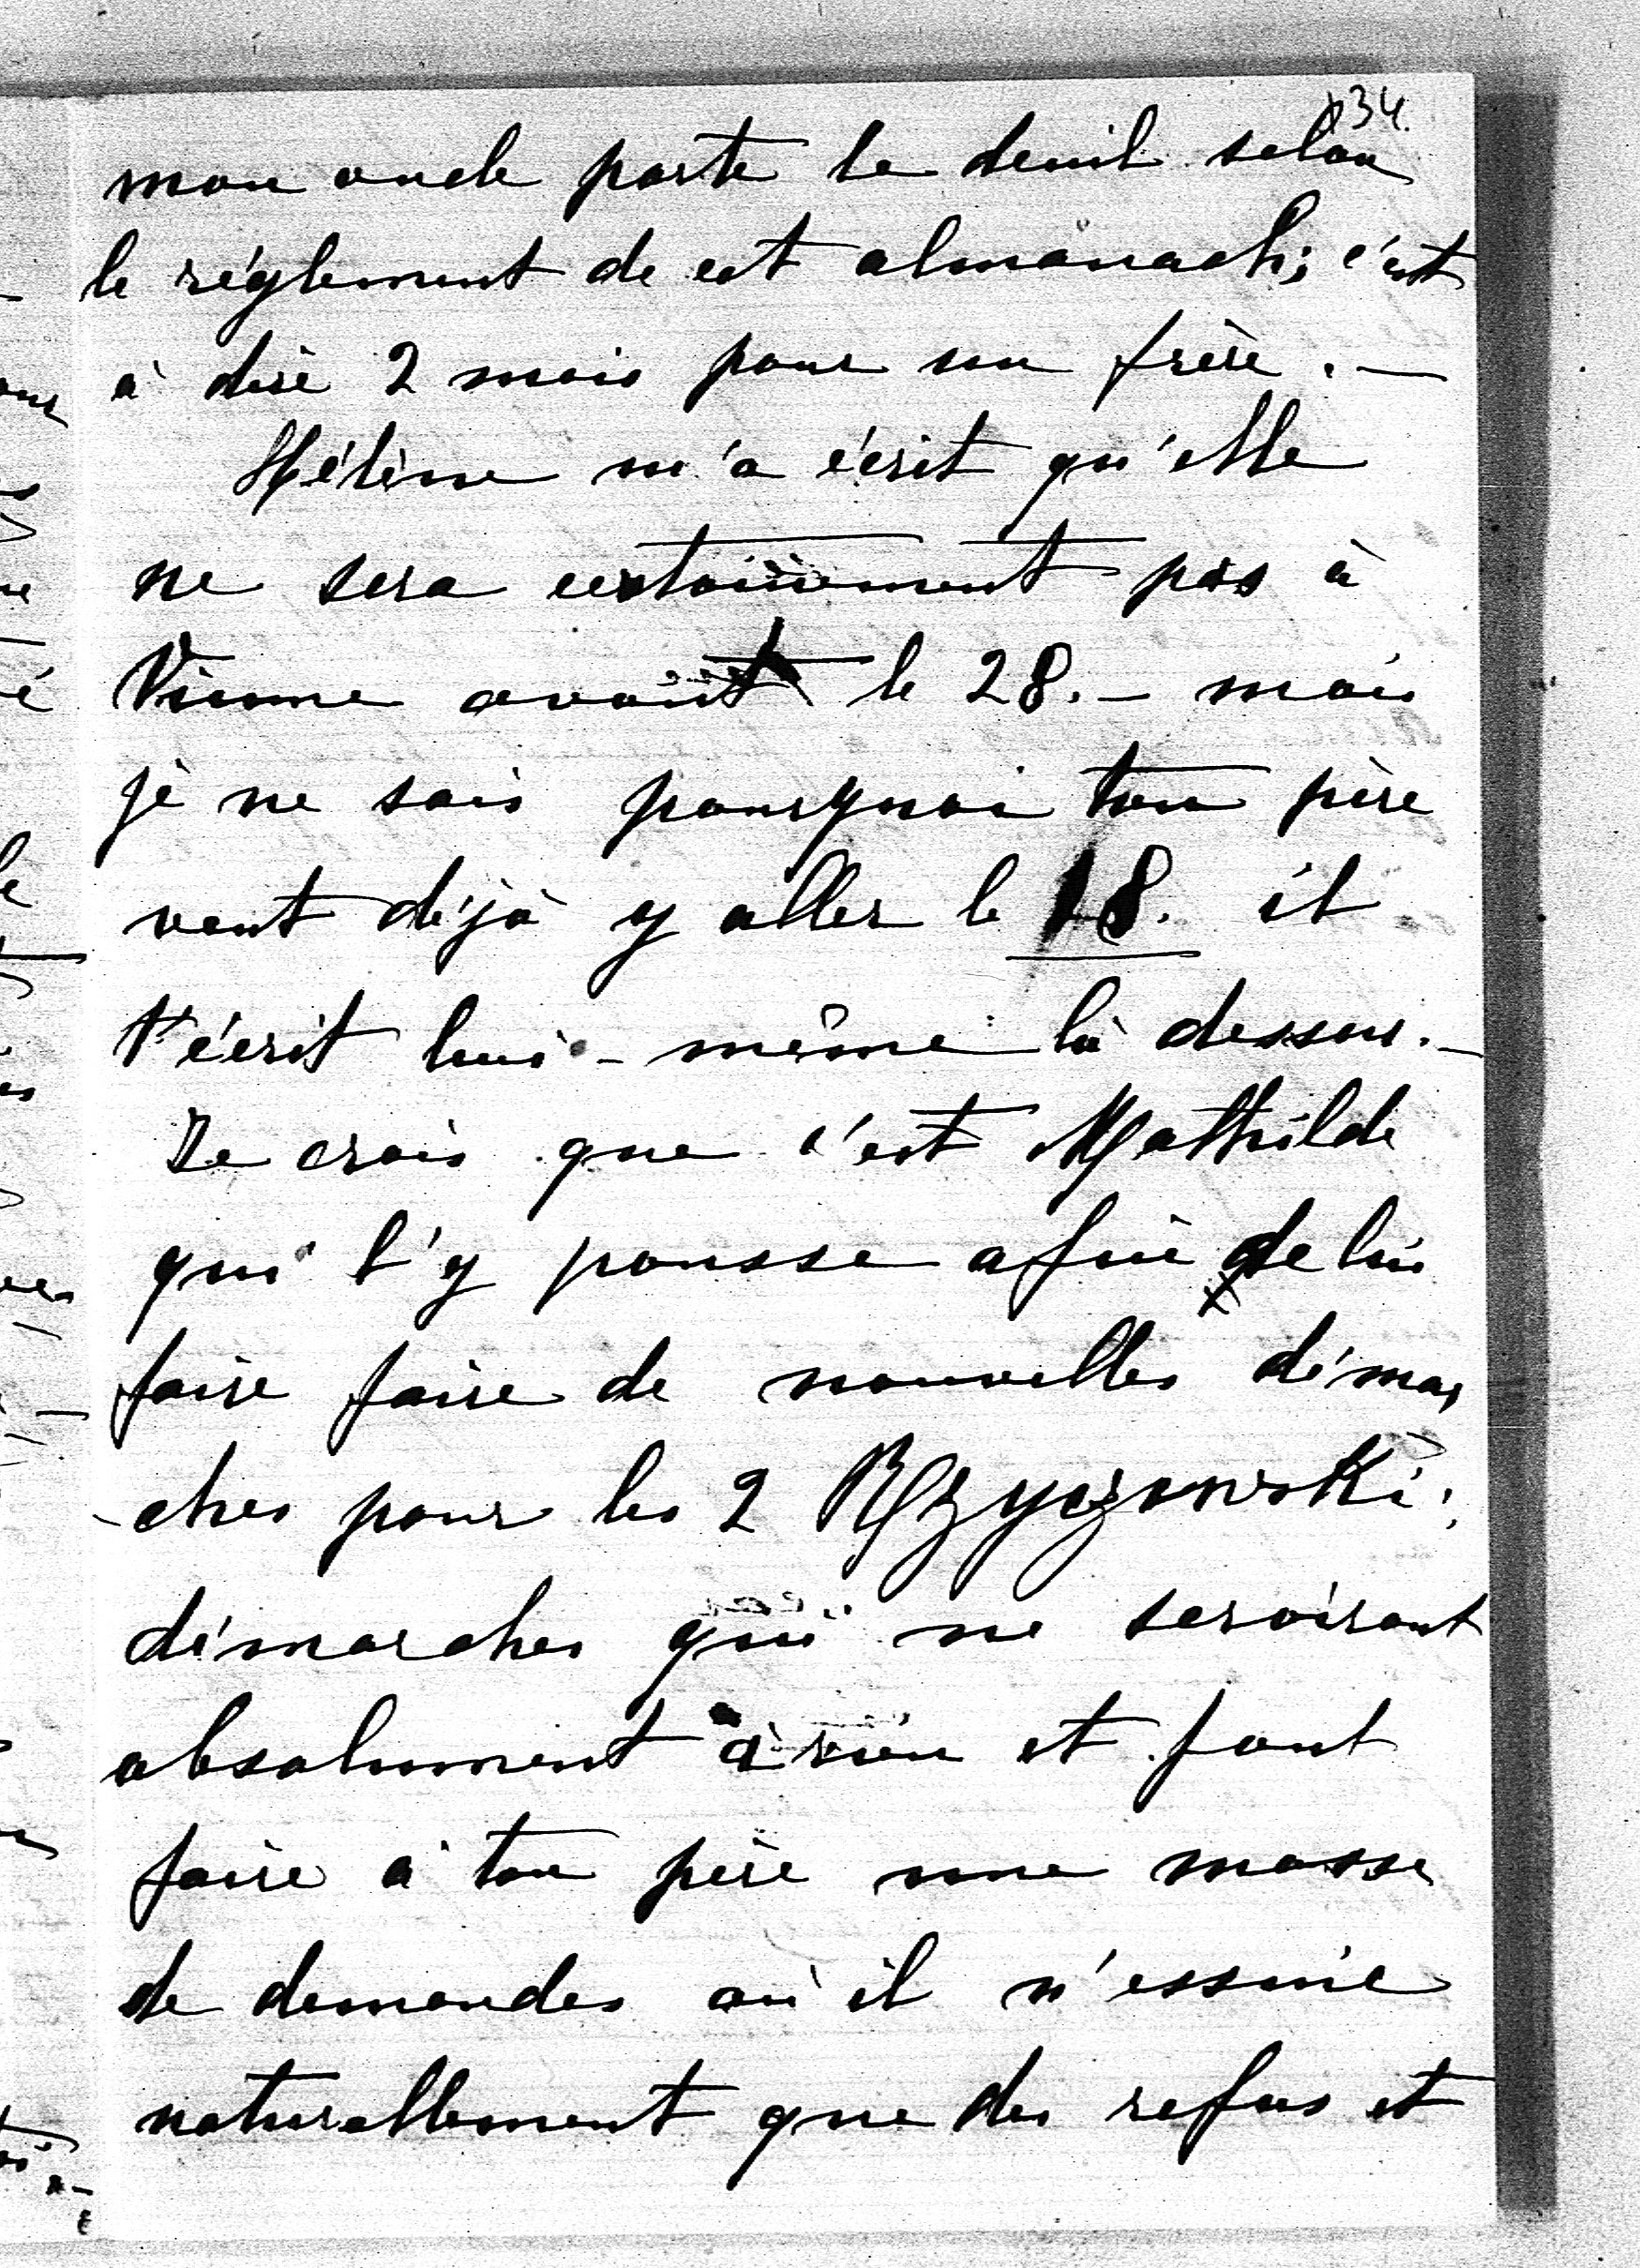 134.
mon oncle porte le deuil selon
le réglement de cet almanach; c'est
à dire 2 mois pour un frère. —
Hélène m'a écrit qu'elle
ne sera certainement pas à
Vienne avant le 28. — mais
je ne sais pourquoi ton père
veut déjà y aller le 18. il
t'écrit lui-même là dessus. —
Je crois que c'est Mathilde
qui l'y pousse afin de lui
faire faire de nouvelles démar
-ches pour les 2 Rzyczowski;
démarches qui ne serviront
absolument à rien et font
faire à ton père une masse
de demandes où il n'essuie
naturellement que des refus et